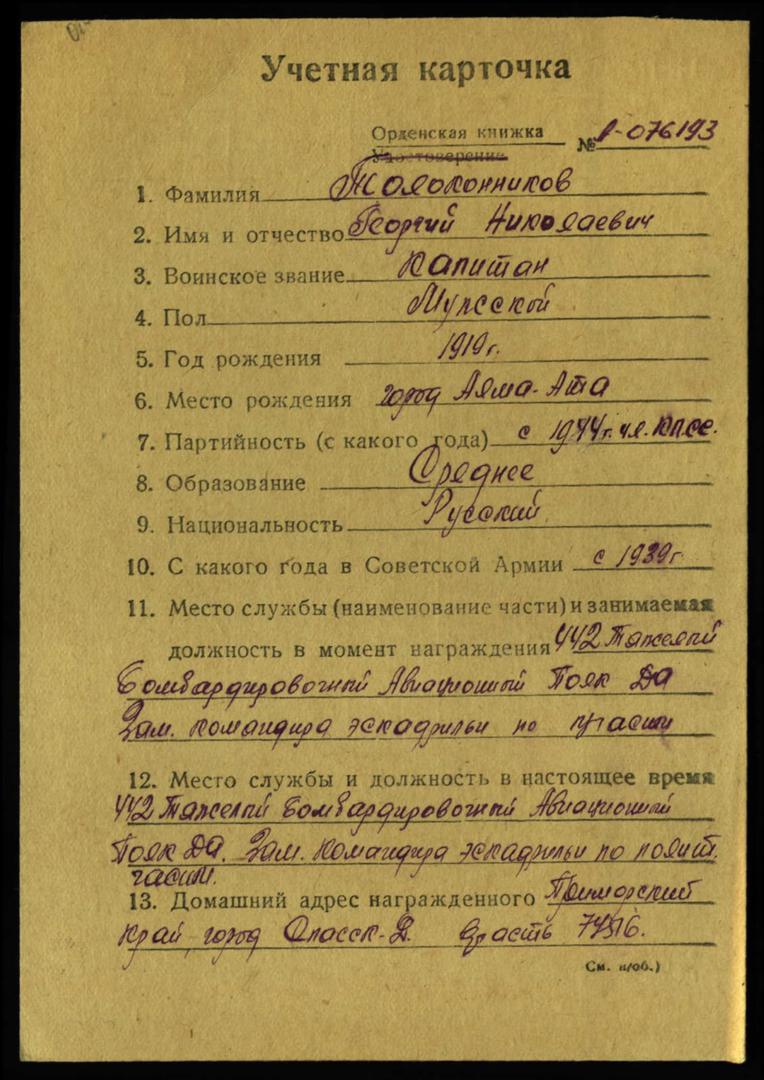 Учетная карточка
Орденская книжка
Удостоверение
№ 076193
1. Фамилия Толоконников
2. Имя и отчество Георгий Николаевич
3. Воинское звание Капитан
4. Пол Мужской
5. Год рождения 1919 г.
6. Место рождения город Алма-Ата
7. Партийность (с какого года) с 1944 г. чл. КПСС.
8. Образование Среднее
9. Национальность Русский
10. С какого года в Советской Армии с 1939 г
11. Место службы (наименование части) и занимаемая
должность в момент награждения 442 Тяжелый
Бомбардировочный Авиационный Полк ДА
Зам. командира эскадрильи по
12. Место службы и должность в настоящее время
442 Тяжелый Бомбардировочный Авиационный
Полк ДА. Зам. командира эскадрильи по полит.
части.
13. Домашний адрес награжденного Приморский
край, город Спасск-Д.
См. н/об.)